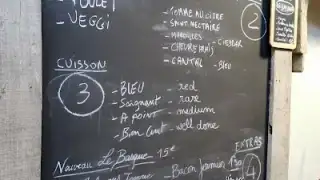 POULET
- VEGGI
- TOMME AU CIDRE
- SAINT-NECTAIRE
- MAROILLES
- CHEVRE
- CHEDDAR
- CANTAL - BLEU
2
CUISSON
3
- BLEU - red
- Saignant - rare
- A point - medium
- Bien Cuit - well done
EXTRAS
4
Nouveau Le Basque 15€
- Bacon